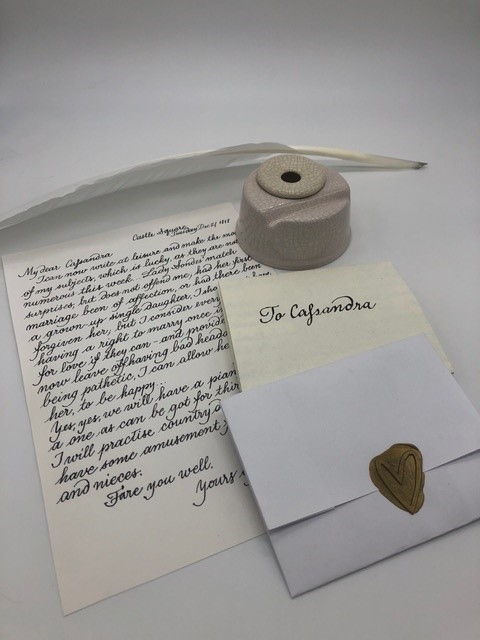 Castle Square,
Tuesday Dec. 27
My dear Cassandra
I can now write at leisure and make the
of my subjects, which is lucky, as they are not
numerous this week. Lady Sondes' match
surprises, but does not offend me; had her first
marriage been of affection, or had there been
a grown up single daughter, I should
forgiven her; but I consider every
having a right to marry once i
for love if they can - and provide
now leave off having bad heada
being pathetic, I can allow he
her, to be happy.
Yes, yes, we will have a pian
a one as can be got for thir
I will practise country d
have some amusement f
and nieces.
Fare you well.
Yours
To Cassandra